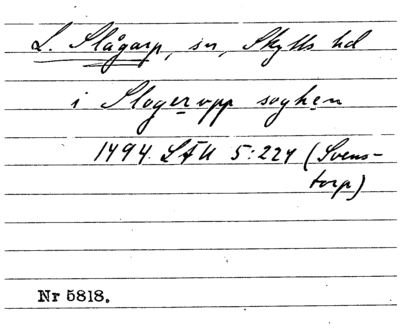 L. Slågarp, sn, Skytts hd
i Slogerupp soghen
1494. LÄU 5:224 (Svens-
torp)
Nr 5818.